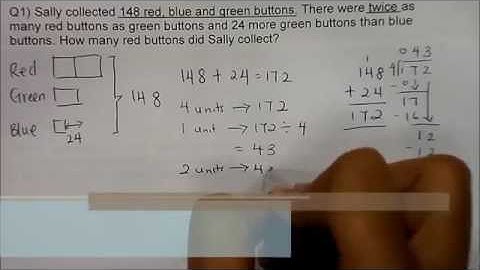 Q1) Sally collected 148 red, blue and green buttons. There were twice as
many red buttons as green buttons and 24 more green buttons than blue
buttons. How many red buttons did Sally collect?
Red
Green
Blue
24
148
148 + 24 = 172
4 units → 172
1 unit → 172 ÷ 4
= 43
2 units → 4
1
148
+ 24
172
043
4 172
- 0
17
- 16
12
- 12